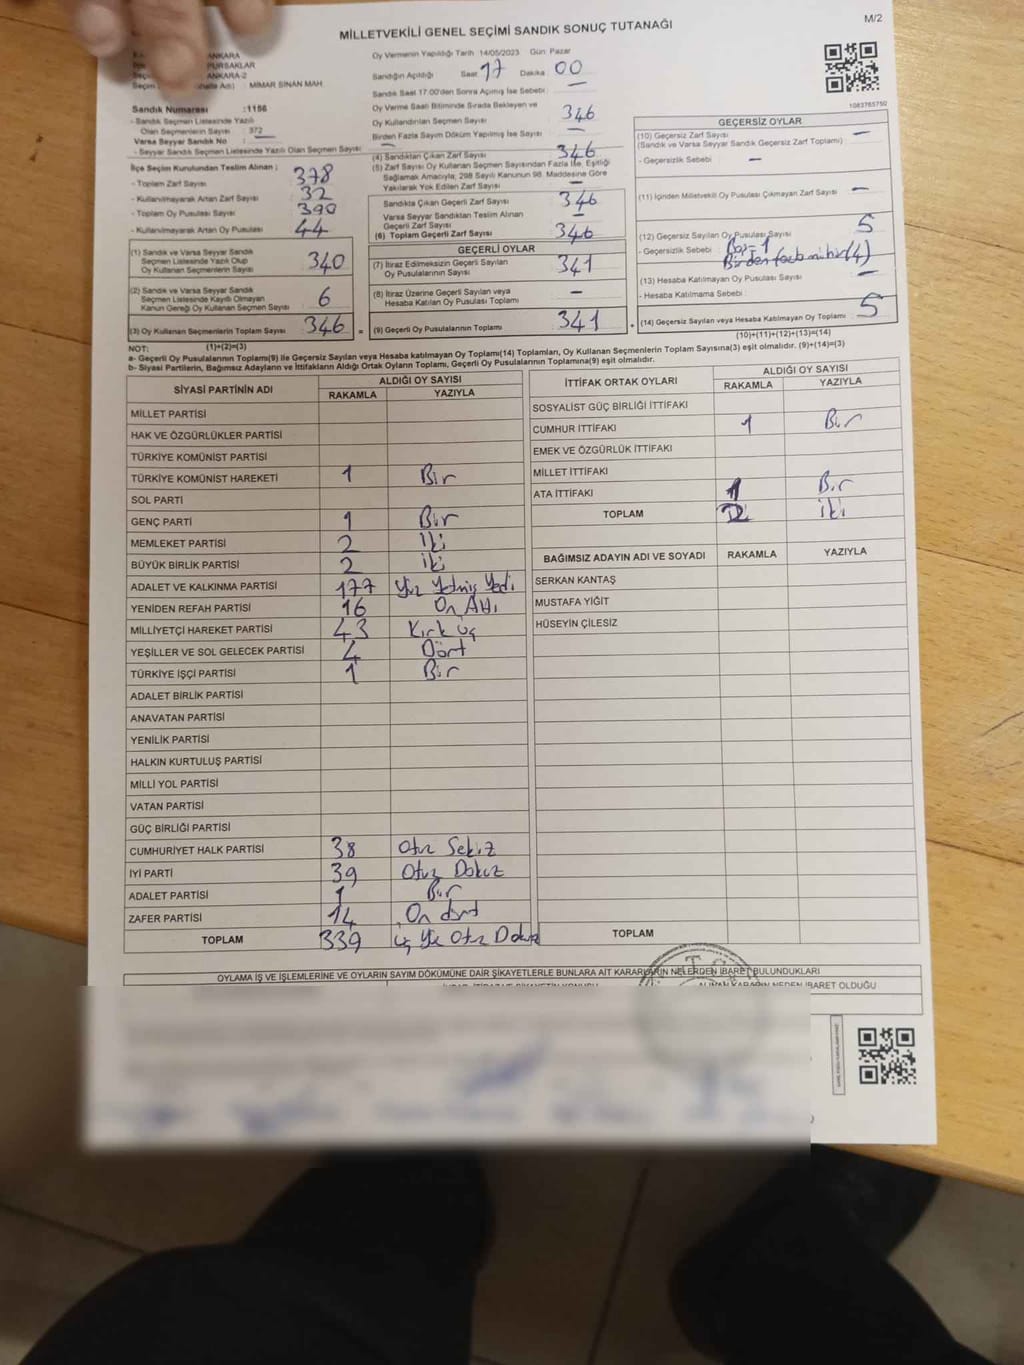 MİLLETVEKİLİ GENEL SEÇİMİ SANDIK SONUÇ TUTANAĞI
M/2
ANKARA
PURSAKLAR
ANKARA-2
MİMAR SİNAN MAH
Sandık Numarası :1156
- Sandık Seçmen Listesinde Yazılı
Olan Seçmenlerin Sayısı : 372
Varsa Seyyar Sandık No :
- Seyyar Sandık Seçmen Listesinde Yazılı Olan Seçmen Sayısı :
İlçe Seçim Kurulundan Teslim Alınan :
- Toplam Zarf Sayısı 378
- Kullanılmayarak Artan Zarf Sayısı 32
- Toplam Oy Pusulası Sayısı 390
- Kullanılmayarak Artan Oy Pusulası 44
(1) Sandık ve Varsa Seyyar Sandık
Seçmen Listesinde Yazılı Olup
Oy Kullanan Seçmenlerin Sayısı 340
(2) Sandık ve Varsa Seyyar Sandık
Seçmen Listesinde Kayıtlı Olmayan
Kanun Gereği Oy Kullanan Seçmen Sayısı 6
(3) Oy Kullanan Seçmenlerin Toplam Sayısı 346 =
(1)+(2)=(3)
Oy Vermenin Yapıldığı Tarih 14/05/2023 Gün Pazar
Sandığın Açıldığı Saat 17 Dakika 00
Sandık Saat 17.00'den Sonra Açılmış İse Sebebi : —
Oy Verme Saati Bitiminde Sırada Bekleyen ve
Oy Kullandırılan Seçmen Sayısı 346
Birden Fazla Sayım Döküm Yapılmış İse Sayısı —
(4) Sandıktan Çıkan Zarf Sayısı 346
(5) Zarf Sayısı Oy Kullanan Seçmen Sayısından Fazla İse, Eşitliği
Sağlamak Amacıyla; 298 Sayılı Kanunun 98. Maddesine Göre
Yakılarak Yok Edilen Zarf Sayısı —
Sandıkta Çıkan Geçerli Zarf Sayısı 346
Varsa Seyyar Sandıktan Teslim Alınan
Geçerli Zarf Sayısı —
(6) Toplam Geçerli Zarf Sayısı 346
GEÇERLİ OYLAR
(7) İtiraz Edilmeksizin Geçerli Sayılan
Oy Pusulalarının Sayısı 341
(8) İtiraz Üzerine Geçerli Sayılan veya
Hesaba Katılan Oy Pusulası Toplamı —
(9) Geçerli Oy Pusulalarının Toplamı 341 +
1083765750
GEÇERSİZ OYLAR
(10) Geçersiz Zarf Sayısı —
(Sandık ve Varsa Seyyar Sandık Geçersiz Zarf Toplamı)
- Geçersizlik Sebebi —
(11) İçinden Milletvekili Oy Pusulası Çıkmayan Zarf Sayısı —
(12) Geçersiz Sayılan Oy Pusulası Sayısı 5
- Geçersizlik Sebebi : Boş = 1
Birden fazla mühür (4)
(13) Hesaba Katılmayan Oy Pusulası Sayısı —
- Hesaba Katılmama Sebebi :
(14) Geçersiz Sayılan veya Hesaba Katılmayan Oy Toplamı 5
(10)+(11)+(12)+(13)=(14)
NOT:
a- Geçerli Oy Pusulalarının Toplamı(9) ile Geçersiz Sayılan veya Hesaba katılmayan Oy Toplamı(14) Toplamları, Oy Kullanan Seçmenlerin Toplam Sayısına(3) eşit olmalıdır. (9)+(14)=(3)
b- Siyasi Partilerin, Bağımsız Adayların ve İttifakların Aldığı Ortak Oyların Toplamı, Geçerli Oy Pusulalarının Toplamına(9) eşit olmalıdır.
SİYASİ PARTİNİN ADI ALDIĞI OY SAYISI
RAKAMLA YAZIYLA
MİLLET PARTİSİ
HAK VE ÖZGÜRLÜKLER PARTİSİ
TÜRKİYE KOMÜNİST PARTİSİ
TÜRKİYE KOMÜNİST HAREKETİ 1 Bir
SOL PARTİ
GENÇ PARTİ 1 Bir
MEMLEKET PARTİSİ 2 İki
BÜYÜK BİRLİK PARTİSİ 2 İki
ADALET VE KALKINMA PARTİSİ 177 Yüz Yetmiş Yedi
YENİDEN REFAH PARTİSİ 16 On Altı
MİLLİYETÇİ HAREKET PARTİSİ 43 Kırk üç
YEŞİLLER VE SOL GELECEK PARTİSİ 4 Dört
TÜRKİYE İŞÇİ PARTİSİ 1 Bir
ADALET BİRLİK PARTİSİ
ANAVATAN PARTİSİ
YENİLİK PARTİSİ
HALKIN KURTULUŞ PARTİSİ
MİLLİ YOL PARTİSİ
VATAN PARTİSİ
GÜÇ BİRLİĞİ PARTİSİ
CUMHURİYET HALK PARTİSİ 38 Otuz Sekiz
İYİ PARTİ 39 Otuz Dokuz
ADALET PARTİSİ 1 Bir
ZAFER PARTİSİ 14 On dört
TOPLAM 339 üç Yüz Otuz Dokuz
İTTİFAK ORTAK OYLARI ALDIĞI OY SAYISI
RAKAMLA YAZIYLA
SOSYALİST GÜÇ BİRLİĞİ İTTİFAKI
CUMHUR İTTİFAKI 1 Bir
EMEK VE ÖZGÜRLÜK İTTİFAKI
MİLLET İTTİFAKI
ATA İTTİFAKI 1 Bir
TOPLAM 2 iki
BAĞIMSIZ ADAYIN ADI VE SOYADI RAKAMLA YAZIYLA
SERKAN KANTAŞ
MUSTAFA YİĞİT
HÜSEYİN ÇİLESİZ
TOPLAM
OYLAMA İŞ VE İŞLEMLERİNE VE OYLARIN SAYIM DÖKÜMÜNE DAİR ŞİKAYETLERLE BUNLARA AİT KARARLARIN NELERDEN İBARET BULUNDUKLARI
ALINAN KARARIN NEDEN İBARET OLDUĞU